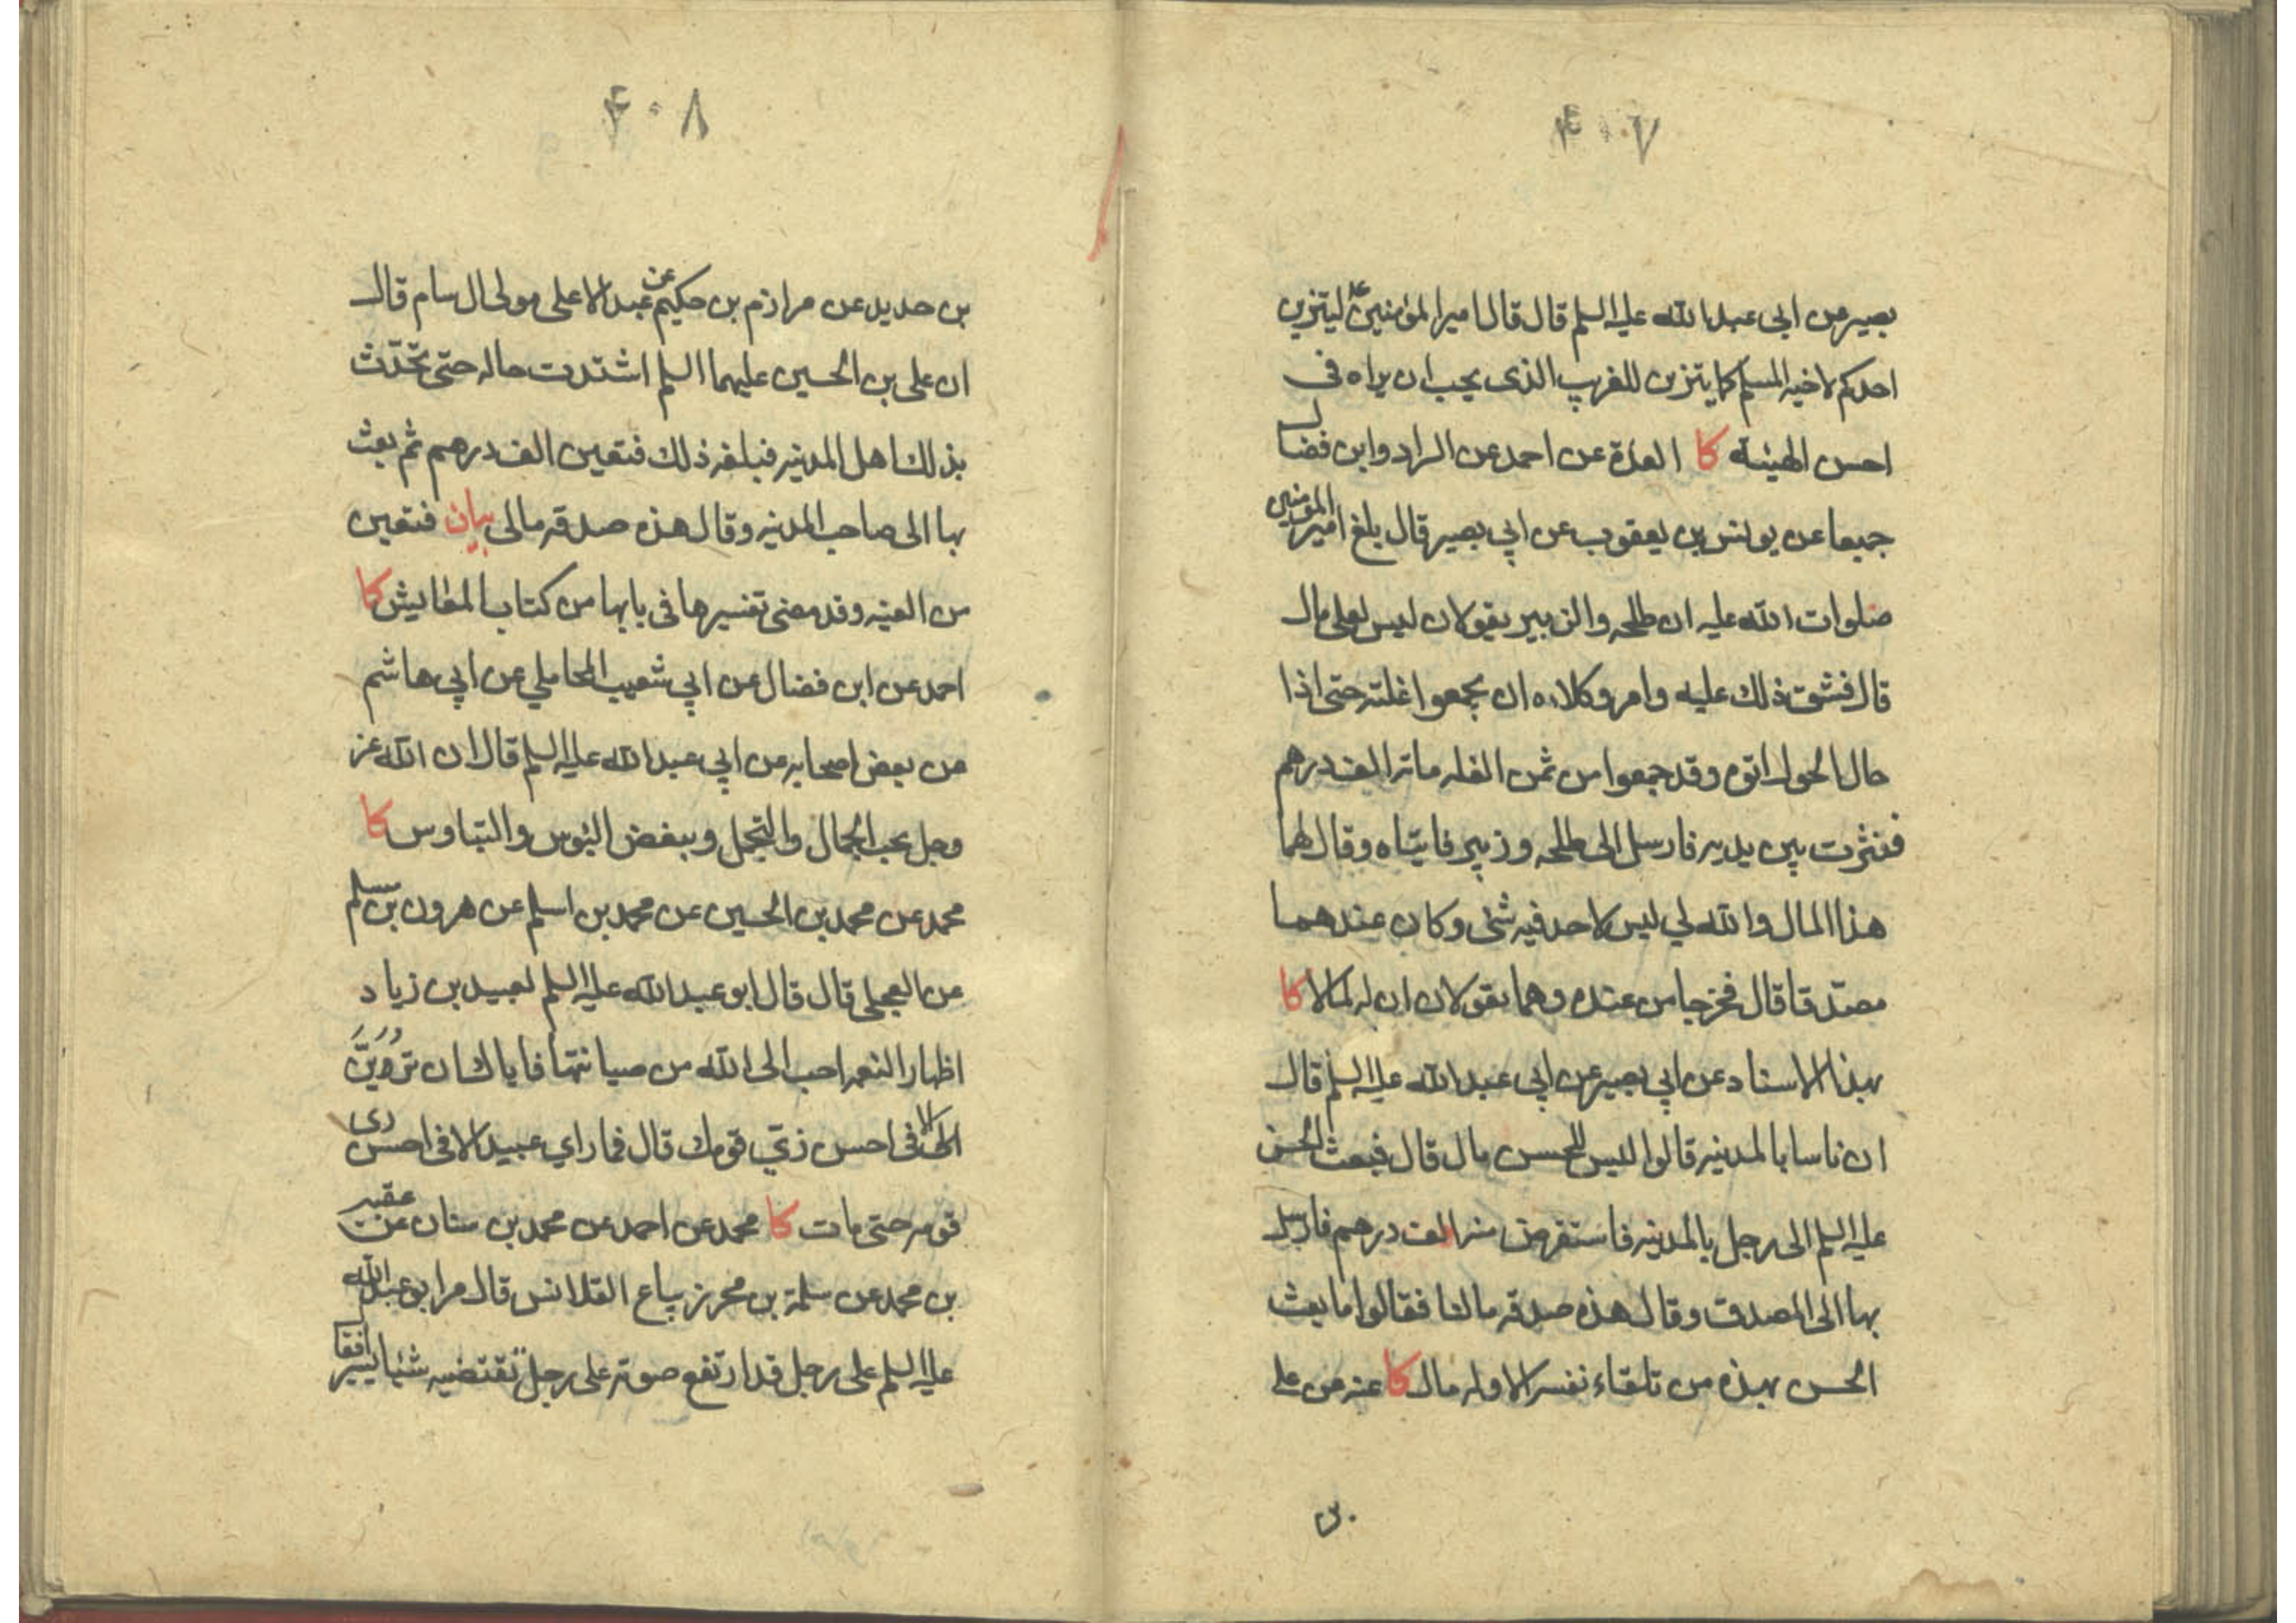 ۴۰۷
بصير عن ابى عبد الله عليه السلم قال قال امير المؤمنين ع ليتزين
احدكم لاخيه المسلم كما يتزين للغريب الذى يحب ان يراه فى
احسن الهيئه كا العدة عن احمد عن السراد وابن فضال
جميعا عن يونس بن يعقوب عن ابي بصير قال بلغ امير المؤمنين
صلوات الله عليه ان طلحه والزبير يقولان ليس لعلى مال
قال فشق ذلك عليه وامر وكلاءه ان يجمعوا غلته حتى اذا
حال الحول اتوه وقد جمعوا من ثمن الغله مائة الف درهم
فنثرت بين يديه فارسل الى طلحه وزبير فاتياه وقال لهما
هذا المال والله لي ليس لاحد فيه شئ وكان عندهما
مصدقا قال فخرجا من عنده وهما يقولان ان له لمالا كا
بهذا الاسناد عن ابي بصير عن ابي عبد الله عليه السلم قال
ان ناسا بالمدينه قالوا ليس للحسن مال قال فبعث الحسن
عليه السلم الى رجل بالمدينه فاستقرض منه الف درهم فارسل
بها الى المصدق وقال هذه صدقه مالنا فقالوا ما بعث
الحسن بهذه من تلقاء نفسه الا وله مال كا عنه عن على
بن
۴۰۸
بن حديد عن مرازم بن حكيم عن عبد الاعلى مولى ال سام قال
ان على بن الحسين عليهما السلم اشتدت حاله حتى تحدث
بذلك اهل المدينه فبلغه ذلك فتعين الف درهم ثم بعث
بها الى صاحب المدينه وقال هذه صدقه مالى بيان فتعين
من العينه وقد مضى تفسيرها فى بابها من كتاب المعايش كا
احمد عن ابن فضال عن ابي شعيب المحاملي عن ابي هاشم
عن بعض اصحابه عن ابي عبد الله عليه السلم قال ان الله عز
وجل يحب الجمال والتجمل ويبغض البؤس والتباوس كا
محمد عن محمد بن الحسين عن محمد بن اسلم عن هرون بن مسلم
عن العجلى قال قال ابو عبد الله عليه السلم لعبيد بن زياد
اظهار النعمه احب الى الله من صيانتها فاياك ان تزين
الا فى احسن زي قومك قال فما راي عبيد الا فى احسن زى
قومه حتى مات كا محمد عن احمد عن محمد بن سنان عن عقبه
بن محمد عن سلمة بن محرز بياع القلانس قال مر ابو عبد الله
عليه السلم على رجل قد ارتفع صوته على رجل يقتضيه شيئا يسيرا فقا